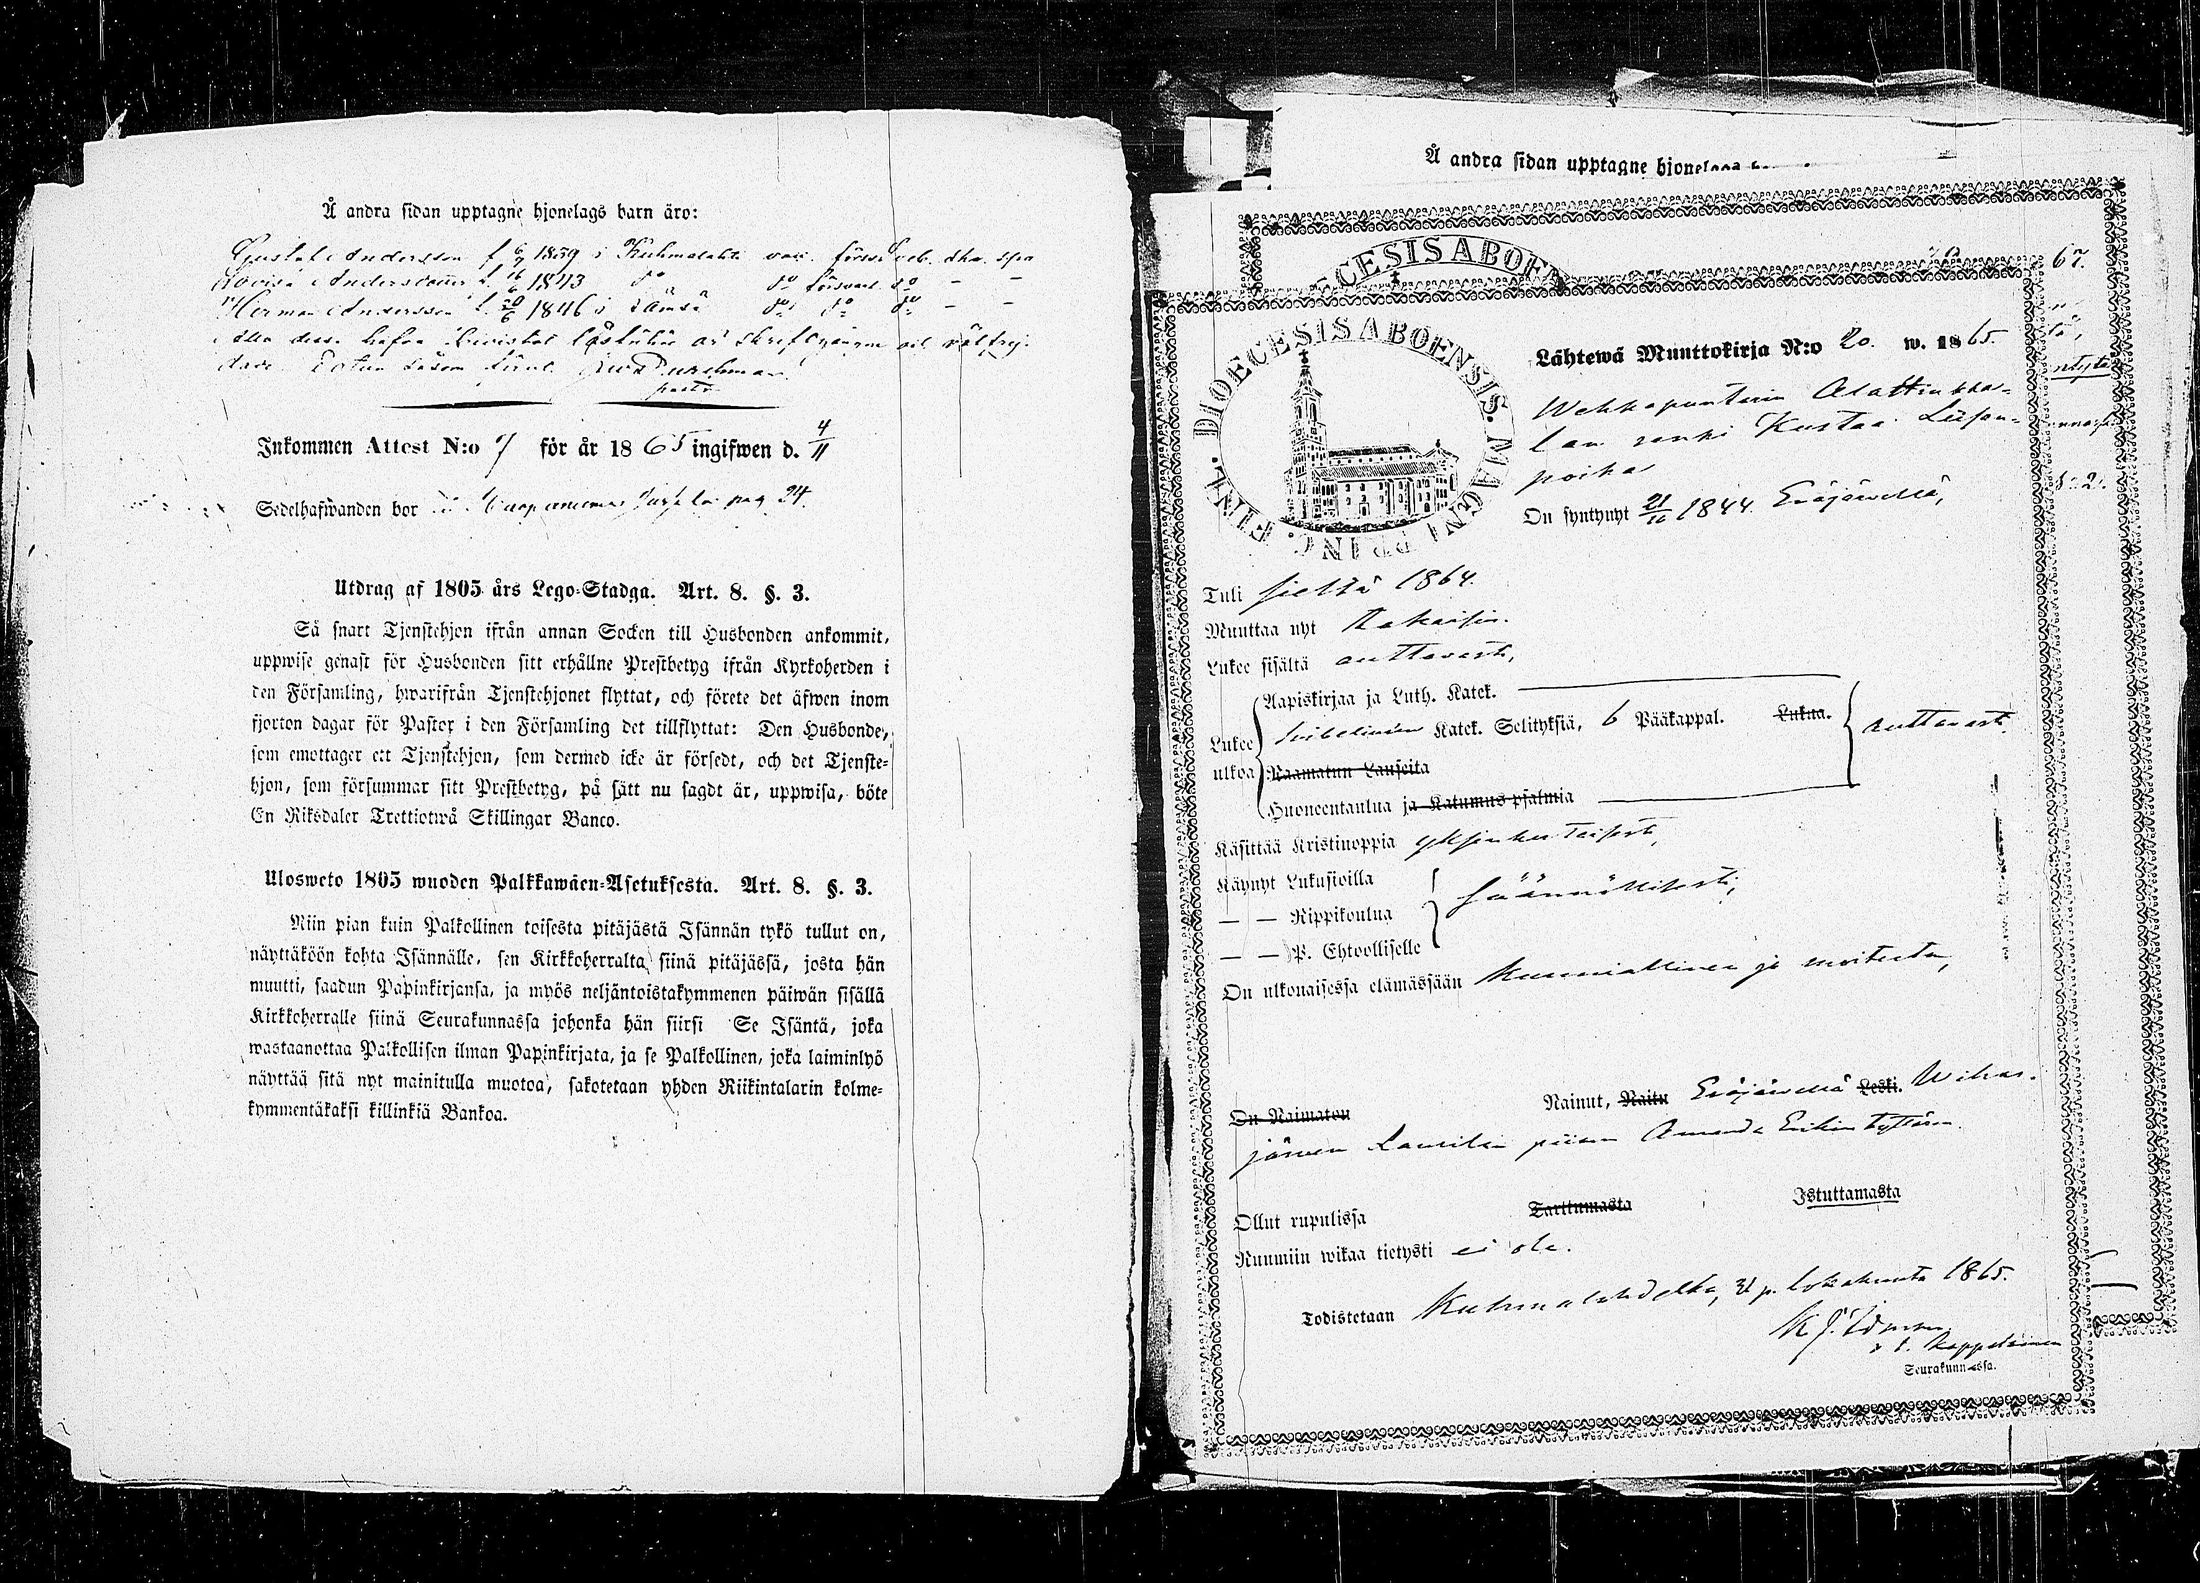 Å andra sidan upptagne hjonelags barn äro:
Gustaf Andersson f. 6/7 1839 i Kuhmalahti vacc.
Lovisa Andersdotter f. 16/6 1843 do do försvarl. do — —
Herman Andersson f. 20/6 1846 i Jämsä do do do — —
Alla dessa hafva bevistat läsk
pastor
Inkommen Attest N:o 7 för år 1865 ingifwen d. 4/11
Sedelhafwanden bor pag 24.
Utdrag af 1805 års Lego-Stadga. Art. 8. §. 3.
Så snart Tjenstehjon ifrån annan Socken till Husbonden ankommit,
uppwise genast för Husbonden sitt erhållne Prestbetyg ifrån Kyrkoherden i
den Församling, hwarifrån Tjenstehjonet flyttat, och förete det äfwen inom
fjorton dagar för Pastor i den Församling det tillflyttat: Den Husbonde,
som emottager ett Tjenstehjon, som dermed icke är försedt, och det Tjenste-
hjon, som försummar sitt Prestbetyg, på sätt nu sagdt är, uppwisa, böte
En Riksdaler Trettiotwå Skillingar Banco.
Ulosweto 1805 wuoden Palkkawäen-Asetuksesta. Art. 8. §. 3.
Niin pian kuin Palkollinen toisesta pitäjästä Isännän tykö tullut on,
näyttäköön kohta Isännälle, sen Kirkkoherralta siinä pitäjässä, josta hän
muutti, saadun Papinkirjansa, ja myös neljäntoistakymmenen päiwän sisällä
Kirkkoherralle siinä Seurakunnassa johonka hän siirsi Se Isäntä, joka
wastaanottaa Palkollisen ilman Papinkirjata, ja se Palkollinen, joka laiminlyö
näyttää sitä nyt mainitulla muotoa, sakotetaan yhden Riikintalarin kolme-
kymmentäkaksi killinkiä Bankoa.
Å andra sidan upptagne hjonelags
67.
DIOECESIS ABOENSIS. MAGNI PRINC. FINL.
Lähtewä Muuttokirja N:o 20. w. 1865.
Wehkapuntarin Alattiukka-
lan renki Kustaa Liisan-
poika
On syntynyt 21/11 1844 Eräjärwellä,
Tuli sieltä 1864.
Muuttaa nyt takaisin.
Lukee sisältä auttavasti,
Aapiskirjaa ja Luth. Katek.
Lukee Katek. Selityksiä, 6 Pääkappal. Lukua. auttavasti.
ulkoa Raamatun Lauseita
Huoneentaulua ja Katumus-psalmia
Käsittää Kristinoppia yksinkertaisesti,
Käynyt Lukusioilla
— — Rippikoulua säännöllisesti,
— — P. Ehtoolliselle
On ulkonaisessa elämässään kunniallinen ja moiteeton,
On Naimaton Nainut, Naitu Eräjärwellä Leski. Wihas-
järwen Laurilan piian Amanda Erikintyttären
Ollut rupulissa Tarttumasta Istuttamasta
Ruumiin wikaa tietysti ei ole.
Todistetaan Kuhmalahdella, 31 p. lokakuuta 1865.
v. t. Kappalainen
Seurakunnassa.